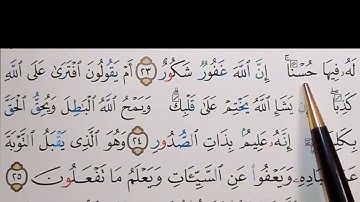 لَهُۥ فِيهَا حُسْنًاۚ إِنَّ ٱللَّهَ غَفُورٌ شَكُورٌ ٢٣ أَمْ يَقُولُونَ ٱفْتَرَىٰ عَلَى ٱللَّهِ
كَذِبًاۖ يَشَإِ ٱللَّهُ يَخْتِمْ عَلَىٰ قَلْبِكَۗ وَيَمْحُ ٱللَّهُ ٱلْبَٰطِلَ وَيُحِقُّ ٱلْحَقَّ
بِكَلِمَٰتِهِۦٓۚ إِنَّهُۥ عَلِيمٌۢ بِذَاتِ ٱلصُّدُورِ ٢٤ وَهُوَ ٱلَّذِى يَقْبَلُ ٱلتَّوْبَةَ
عَنْ عِبَادِهِۦ وَيَعْفُوا۟ عَنِ ٱلسَّيِّـَٔاتِ وَيَعْلَمُ مَا تَفْعَلُونَ ٢٥